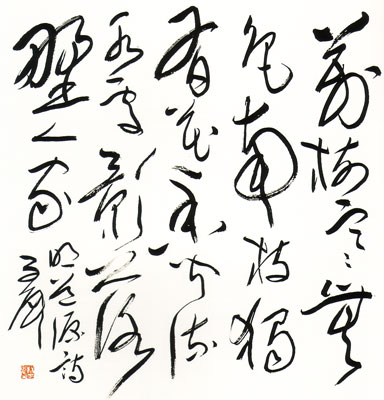 萬樹寒無
色南枝獨
有花香聞流
水處影落
野人家
明道源詩